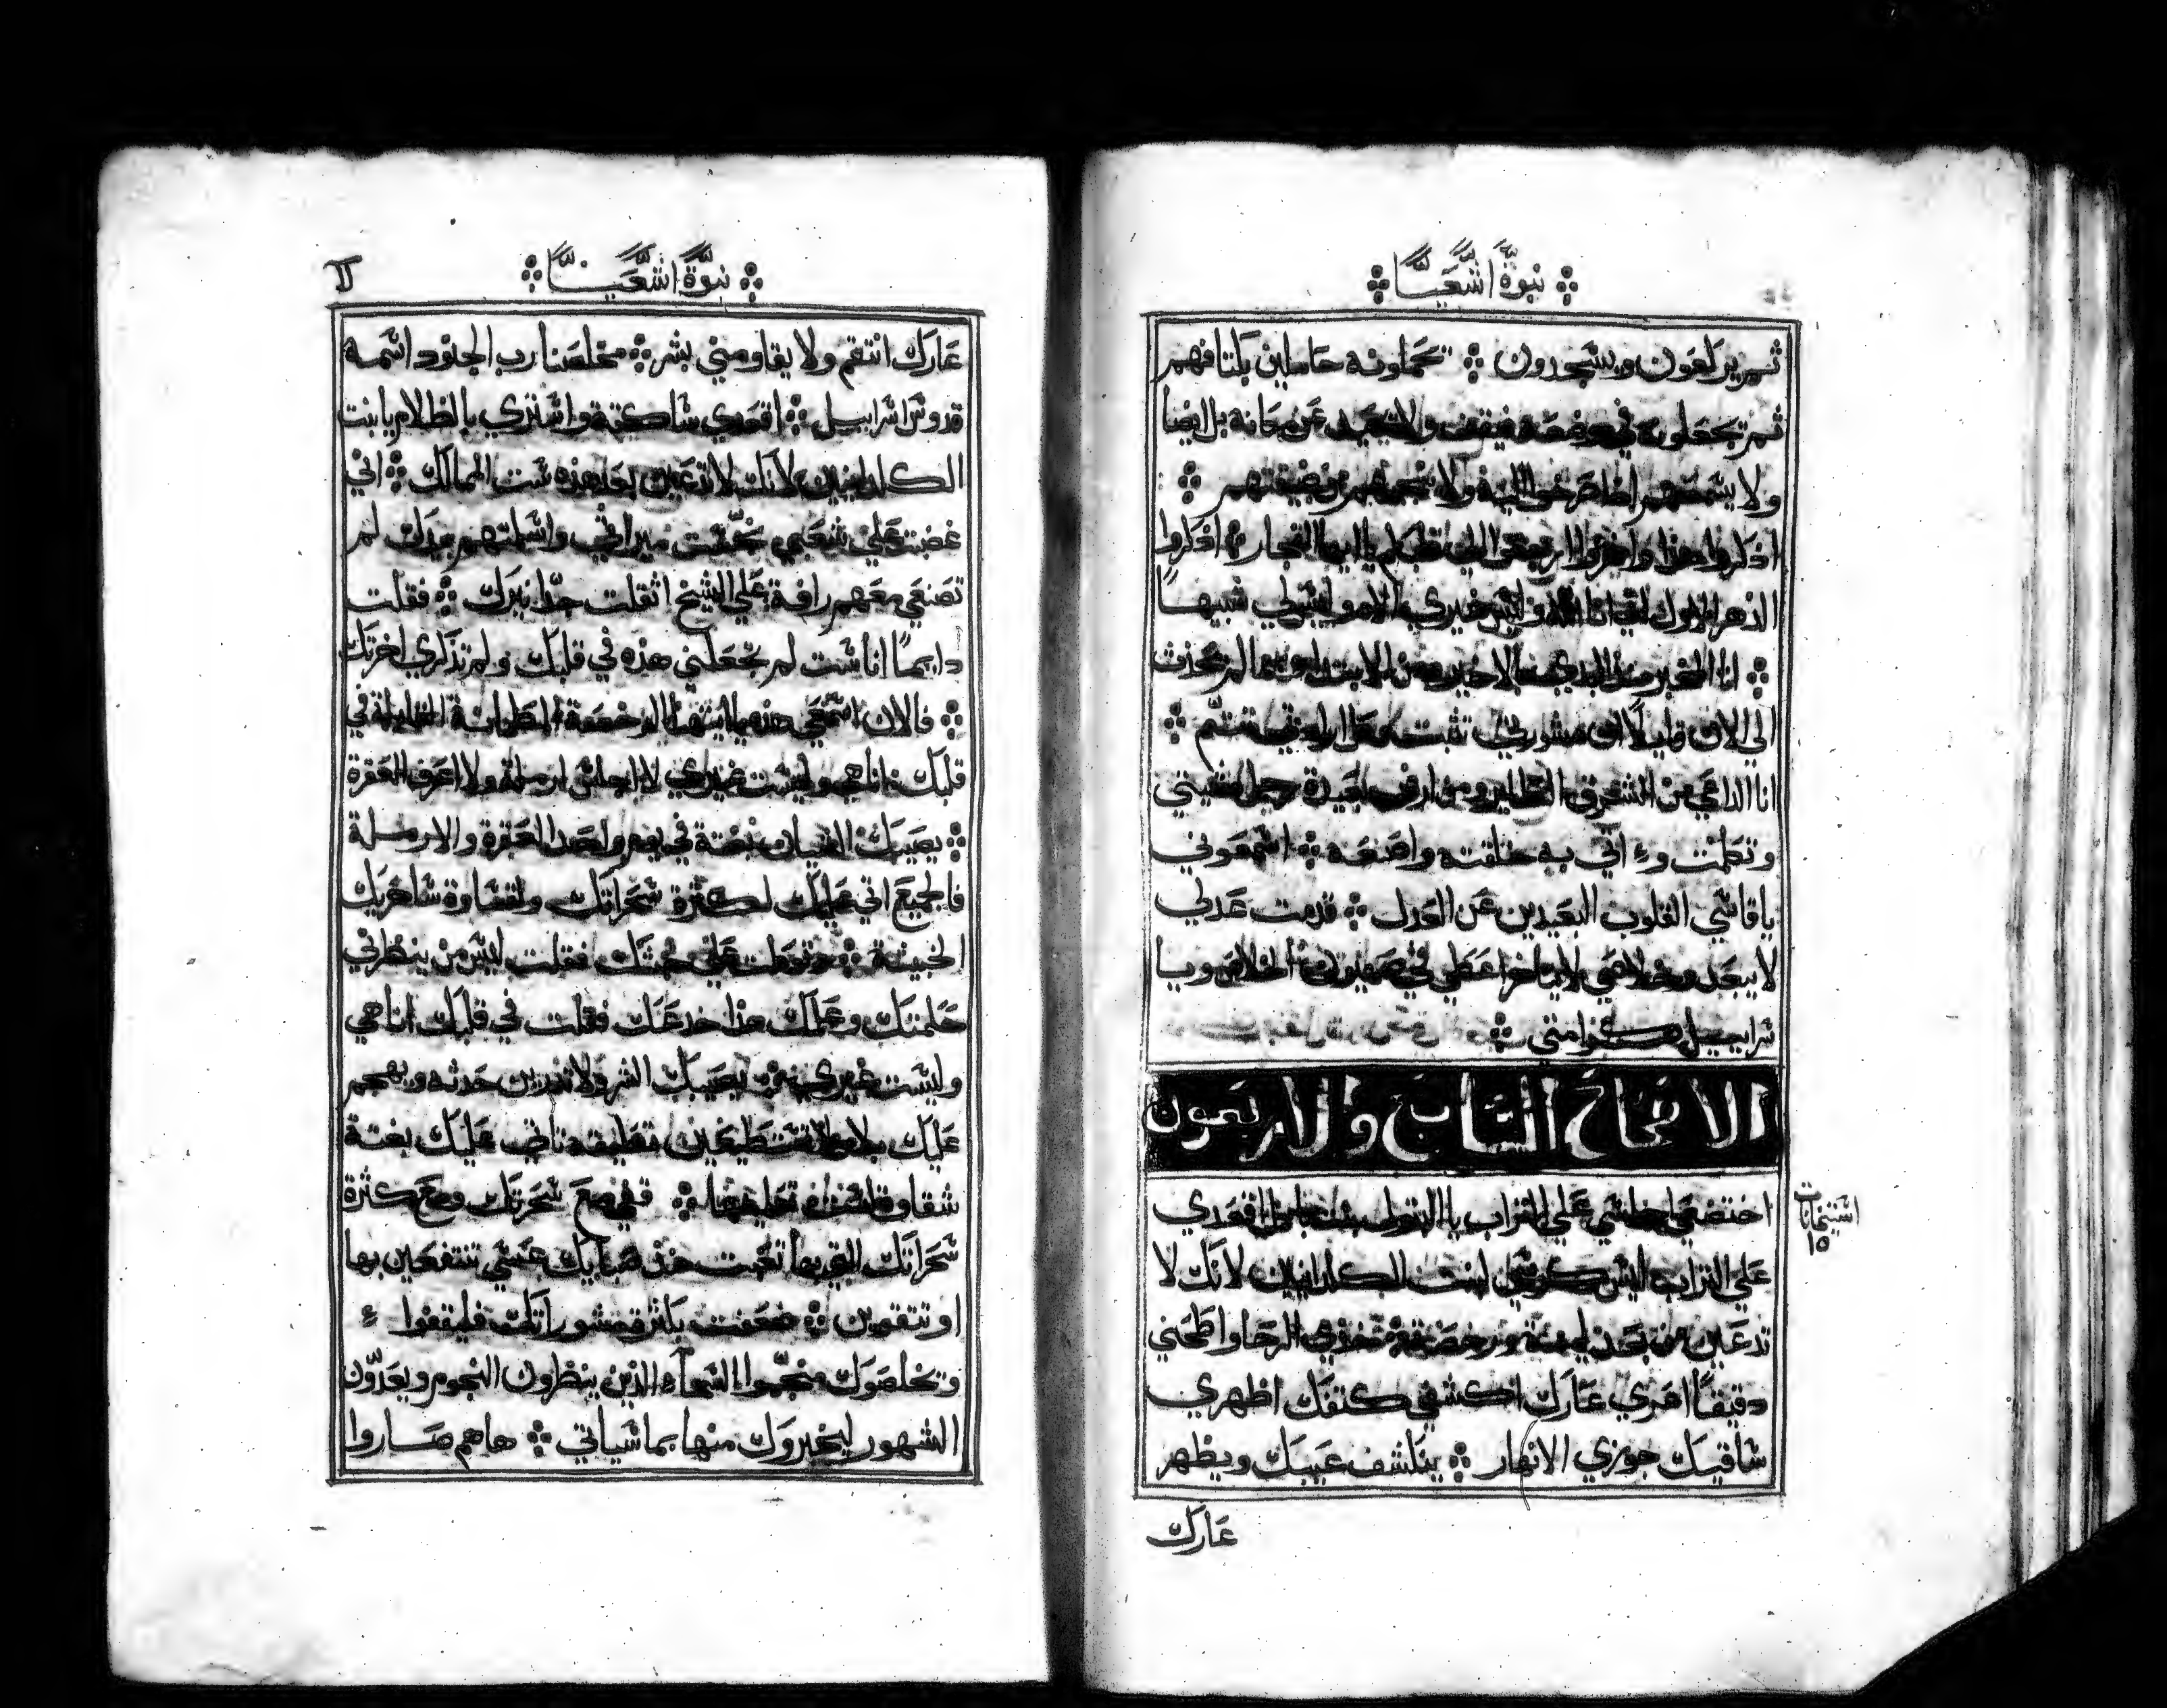 نبوة اشعيا
ثم يركعون ويسجدون ܀ تحملونه حاملين بكتافهم
ثم تجعلونه في موضعه فيقف ولا يحيد عن مكانه بل ايضا
ولا يسمعهم اذا صرخوا اليه ولا ينجيهم من ضيقتهم ܀
اذكروا هذا واخزوا ارجعوا الي قلبكم يا ايها الفجار ܀ اذكروا
الدهر الاول اني انا الله وليس غيري اله وليس لي شبيها
܀ انا المخبر منذ البدي بالاخير ومن الابتدا بما لم يحدث
الي الان قايلا ان مشورتي تثبت وكل ارادتي تتم ܀
انا الداعي من الشرق الطاير ومن ارض بعيدة رجل مشيتي
وتكلمت واتي به خلقته واصنعه ܀ اسمعوني
يا قاسي القلوب البعيدين عن العدل ܀ قدمت عدلي
لا يبعد وخلاصي لا يتاخر اعطي في صهيون الخلاص وبا
سراييل مكرامتي ܀
الافتحاح السابع والاربعون
اختضعي اجلسي علي التراب يا البتول بنت بابل اقعدي
علي التراب ليس كرسي لبنت الكلدانيين لانك لا
تدعين من بعد لينة ورخصة ܀ خذي الرحا واطحني
دقيقا اعري عارك اكشفي كتفك اظهري
ساقيك جوزي الانهار ܀ ينكشف عيبك ويظهر
عارك
استيخانات
١٥
نبوة اشعيا
عارك انتقم ولا يقاومني بشر ܀ مخلصنا رب الجنود اسمه
قدوس اسراييل ܀ اقعدي ساكتة واستتري بالظلام يا بنت
الكلدانيين لانك لا تدعين بعد هذه ست الممالك ܀ اني
غضبت علي شعبي نجست ميراثي واسلمتهم بيدك لم
تصنعي معهم رافة علي الشيخ اثقلت جدا نيرك ܀ فقلت
دايما انا ست لم تجعلني هذه في قلبك ولم تذكري اخرتك
܀ فالان اسمعي هذه يا ايتها الرخصة المطمانة القايلة في
قلبك انا هي وليست غيري لا اجلس ارملة ولا اعرف العقرة
܀ يصيبك الاثنان بغتة في يوم واحد العقرة والارملة
فالجميع اتي عليك لكثرة سحراتك ولقساوة ساحريك
الخبيثة ܀ وتوكلت علي خبثك فقلت ليس من ينظرني
حكمتك وعلمك هذا خدعك فقلت في قلبك انا هي
وليست غيري ܀ يصيبك الشر ولا تدرين حدثه ويهجم
عليك بلا ما تستطيعين تنقيته تاتي عليك بغتة
شقاوة لست تعليمها ܀ قفي مع سحرتك ومع كثرة
سحراتك التي بها تعبت منذ صبايك عسي تنتفعين بها
او تتقوين ܀ ضعفت بكثرة مشوراتك فليقفوا
وتخلصوك منجموا السماء الذين ينظرون النجوم ويعدون
الشهور ليخبروك منها بما سياتي ܀ ها هم صاروا